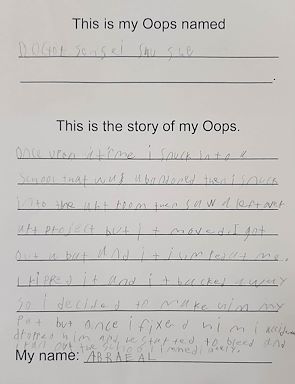 This is my Oops named
Doctor
This is the story of my Oops.
Once upon a time i snuck into a
School that was abandoned then i snuck
into the art room then saw a leftover
art project but it moved I got
out a bat and it jumped at me.
i ripped it and it backed away
so i decided to make him my
Pet but once i fixed him i
dropped him and he started to bleed and
i ran out the school immediately.
My name: